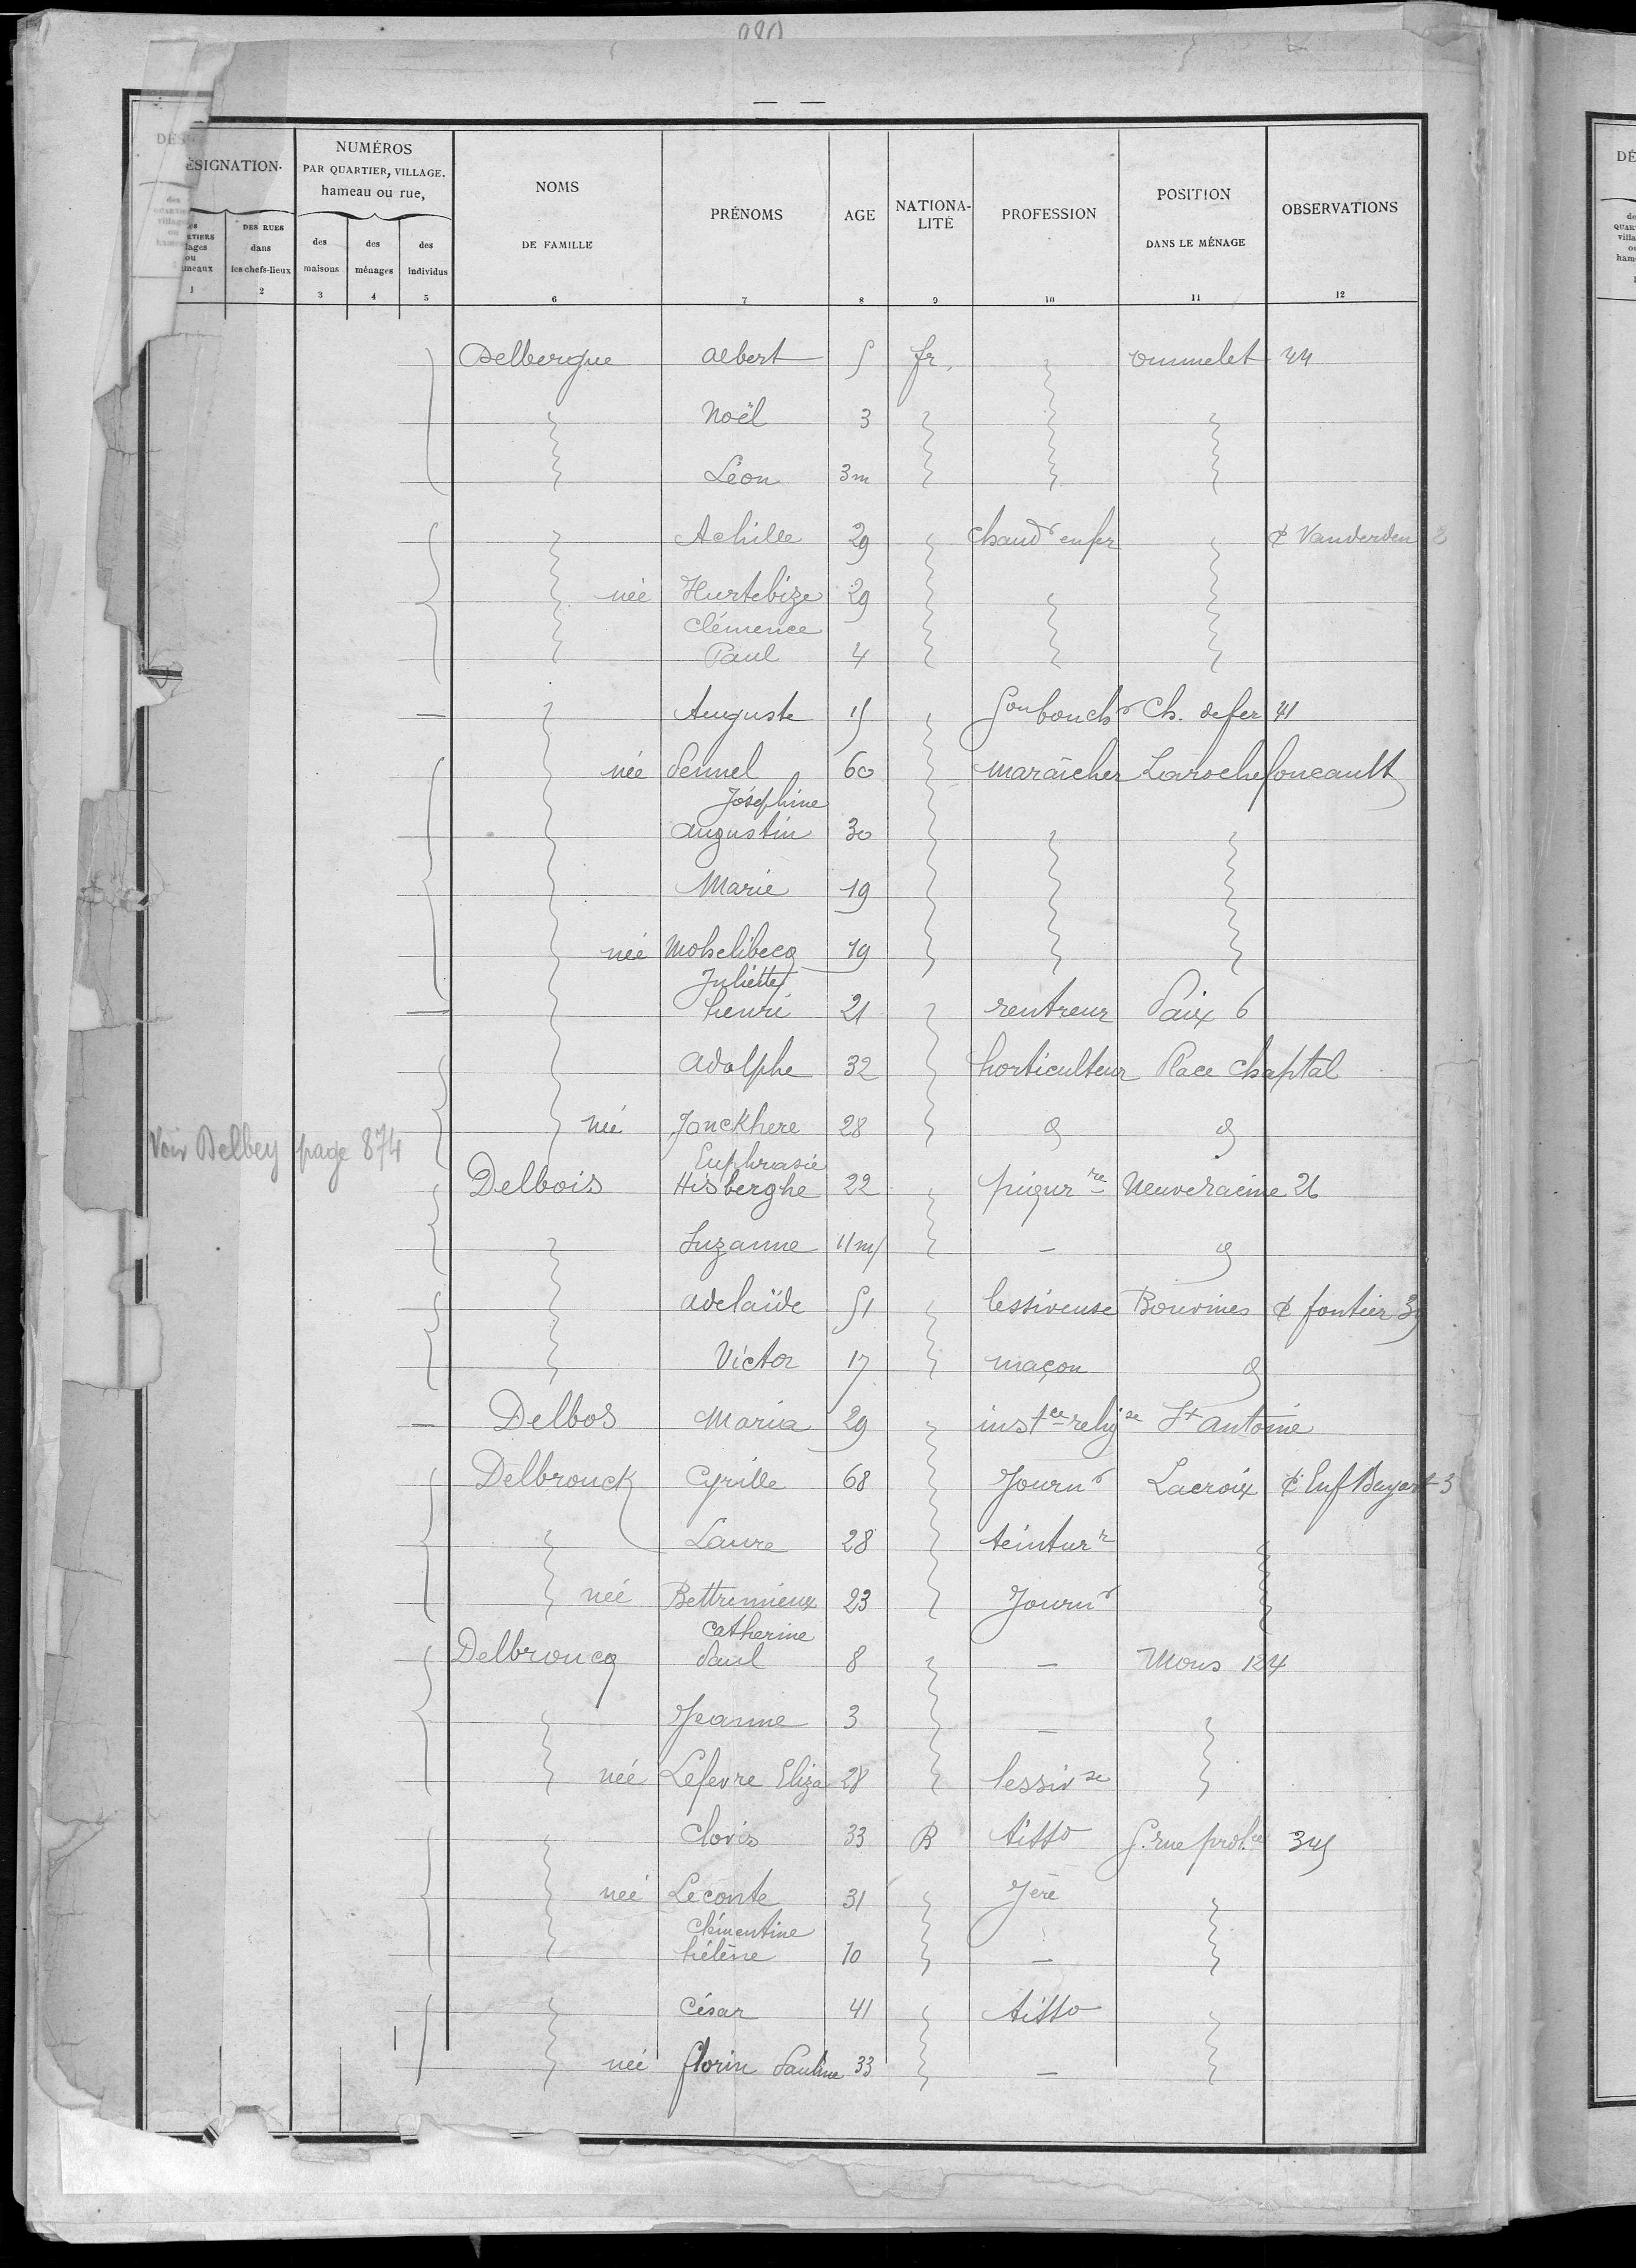 DÉSIGNATION.
NUMÉROS
PAR QUARTIER, VILLAGE.
hameau ou rue,
NOMS
DE FAMILLE
PRÉNOMS
AGE
NATIONA-
LITÉ
PROFESSION
POSITION
DANS LE MÉNAGE
OBSERVATIONS
DES RUES
dans
les chefs-lieux
des
maisons
des
ménages
des
individus
1 2 3 4 5 6 7 8 9 10 11 12
Delbergue Albert 5 fr. Ommelet 44
Noël 3
Léon 3m
Achille 29 chaud r en fer ¢ Vanderden 2
née Hurtebize 29
Clémence
Paul 4
Auguste 15 Gon bouch r Ch. de fer 41
née Pennel 60 maraîcher Larochefoucault
Joséphine
Augustin 30
Marie 19
née 19
Juliette
henri 21 rentreur Paix 6
Adolphe 32 horticulteur Place Chaptal
née Jonckhere 28
Euphrasie
Voir Delbey page 874
Delbois Hisberghe 22 piqur re Neuve racine 26
Suzanne 11m —
Adelaïde 51 lessiveuse Bouvines ¢ fontier 39
Victor 17 maçon
Delbos Maria 29 inst ce relig se St Antoine
Delbrouck Cyrille 68 Journ r Lacroix ¢ Enf Bayart 3
Laure 28 teintur r
née Bettremieux 23 Journ r
Catherine
Delbroucq Paul 8 — Mons 124
Jeanne 3 —
née Lefevre Eliza 28 lessiv se
Clovis 33 B tisso G. rue prol. ée 345
née Leconte 31 Jère
Clémentine
hélène 10 —
César 41 tisso
née florin Pauline 33 —